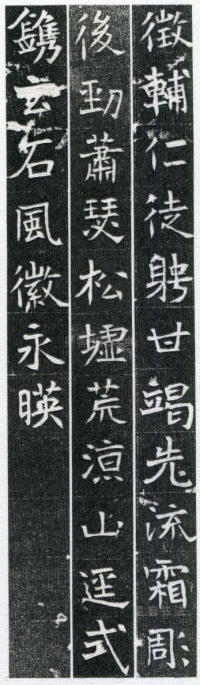 徵輔仁徒聘甘竭先流霜彫
後勁蕭瑟松墟荒涼山逕式
鐫玄石風徽永暎